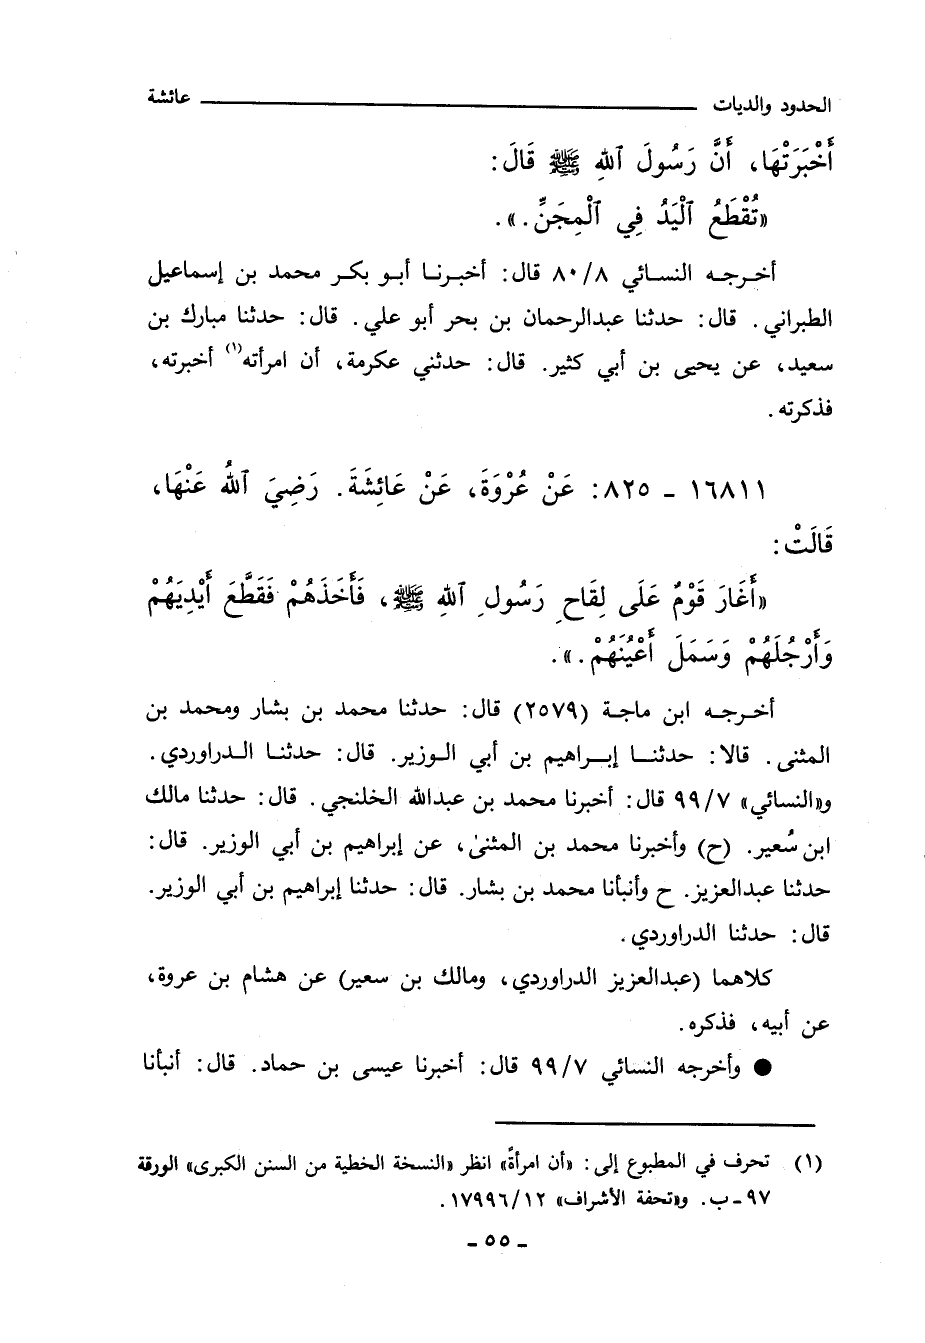 الحدود والديات ــــــــــــــــــــ عائشة
أَخْبَرَتْهَا، أَنَّ رَسُولَ ٱللهِ ﷺ قَالَ:
«تُقْطَعُ ٱلْيَدُ فِي ٱلْمِجَنِّ.».
أخرجه النسائي ٨٠/٨ قال: أخبرنا أبو بكر محمد بن إسماعيل
الطبراني. قال: حدثنا عبدالرحمان بن بحر أبو علي. قال: حدثنا مبارك بن
سعيد، عن يحيى بن أبي كثير. قال: حدثني عكرمة، أن امرأته(١) أخبرته،
فذكرته.
١٦٨١١ ـ ٨٢٥: عَنْ عُرْوَةَ، عَنْ عَائِشَةَ. رَضِيَ ٱللهُ عَنْهَا،
قَالَتْ:
«أَغَارَ قَوْمٌ عَلَى لِقَاحِ رَسُولِ ٱللهِ ﷺ، فَأَخَذَهُمْ فَقَطَّعَ أَيْدِيَهُمْ
وَأَرْجُلَهُمْ وَسَمَلَ أَعْيُنَهُمْ.».
أخرجه ابن ماجة (٢٥٧٩) قال: حدثنا محمد بن بشار ومحمد بن
المثنى. قالا: حدثنا إبراهيم بن أبي الوزير. قال: حدثنا الدراوردي.
و«النسائي» ٩٩/٧ قال: أخبرنا محمد بن عبدالله الخلنجي. قال: حدثنا مالك
ابن سُعير. (ح) وأخبرنا محمد بن المثنىٰ، عن إبراهيم بن أبي الوزير. قال:
حدثنا عبدالعزيز. ح وأنبأنا محمد بن بشار. قال: حدثنا إبراهيم بن أبي الوزير.
قال: حدثنا الدراوردي.
كلاهما (عبدالعزيز الدراوردي، ومالك بن سعير) عن هشام بن عروة،
عن أبيه، فذكره.
● وأخرجه النسائي ٩٩/٧ قال: أخبرنا عيسى بن حماد. قال: أنبأنا
(١) تحرف في المطبوع إلى: «أن امرأةً» انظر «النسخة الخطية من السنن الكبرى» الورقة
٩٧ ـ ب. و«تحفة الأشراف» ١٧٩٩٦/١٢.
ـ ٥٥ ـ